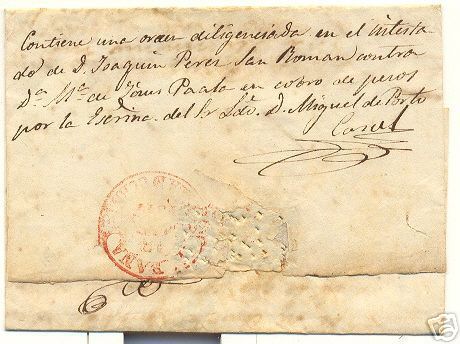 Contiene una orden diligenciada en el intesta
do de D. Joaquin Perez San Roman contra
Dª. Mª. de Jesus Paula en cobro de pesos
por la Escrina. del Sr. Ldo. D. Miguel de Porto
HABANA
eBay